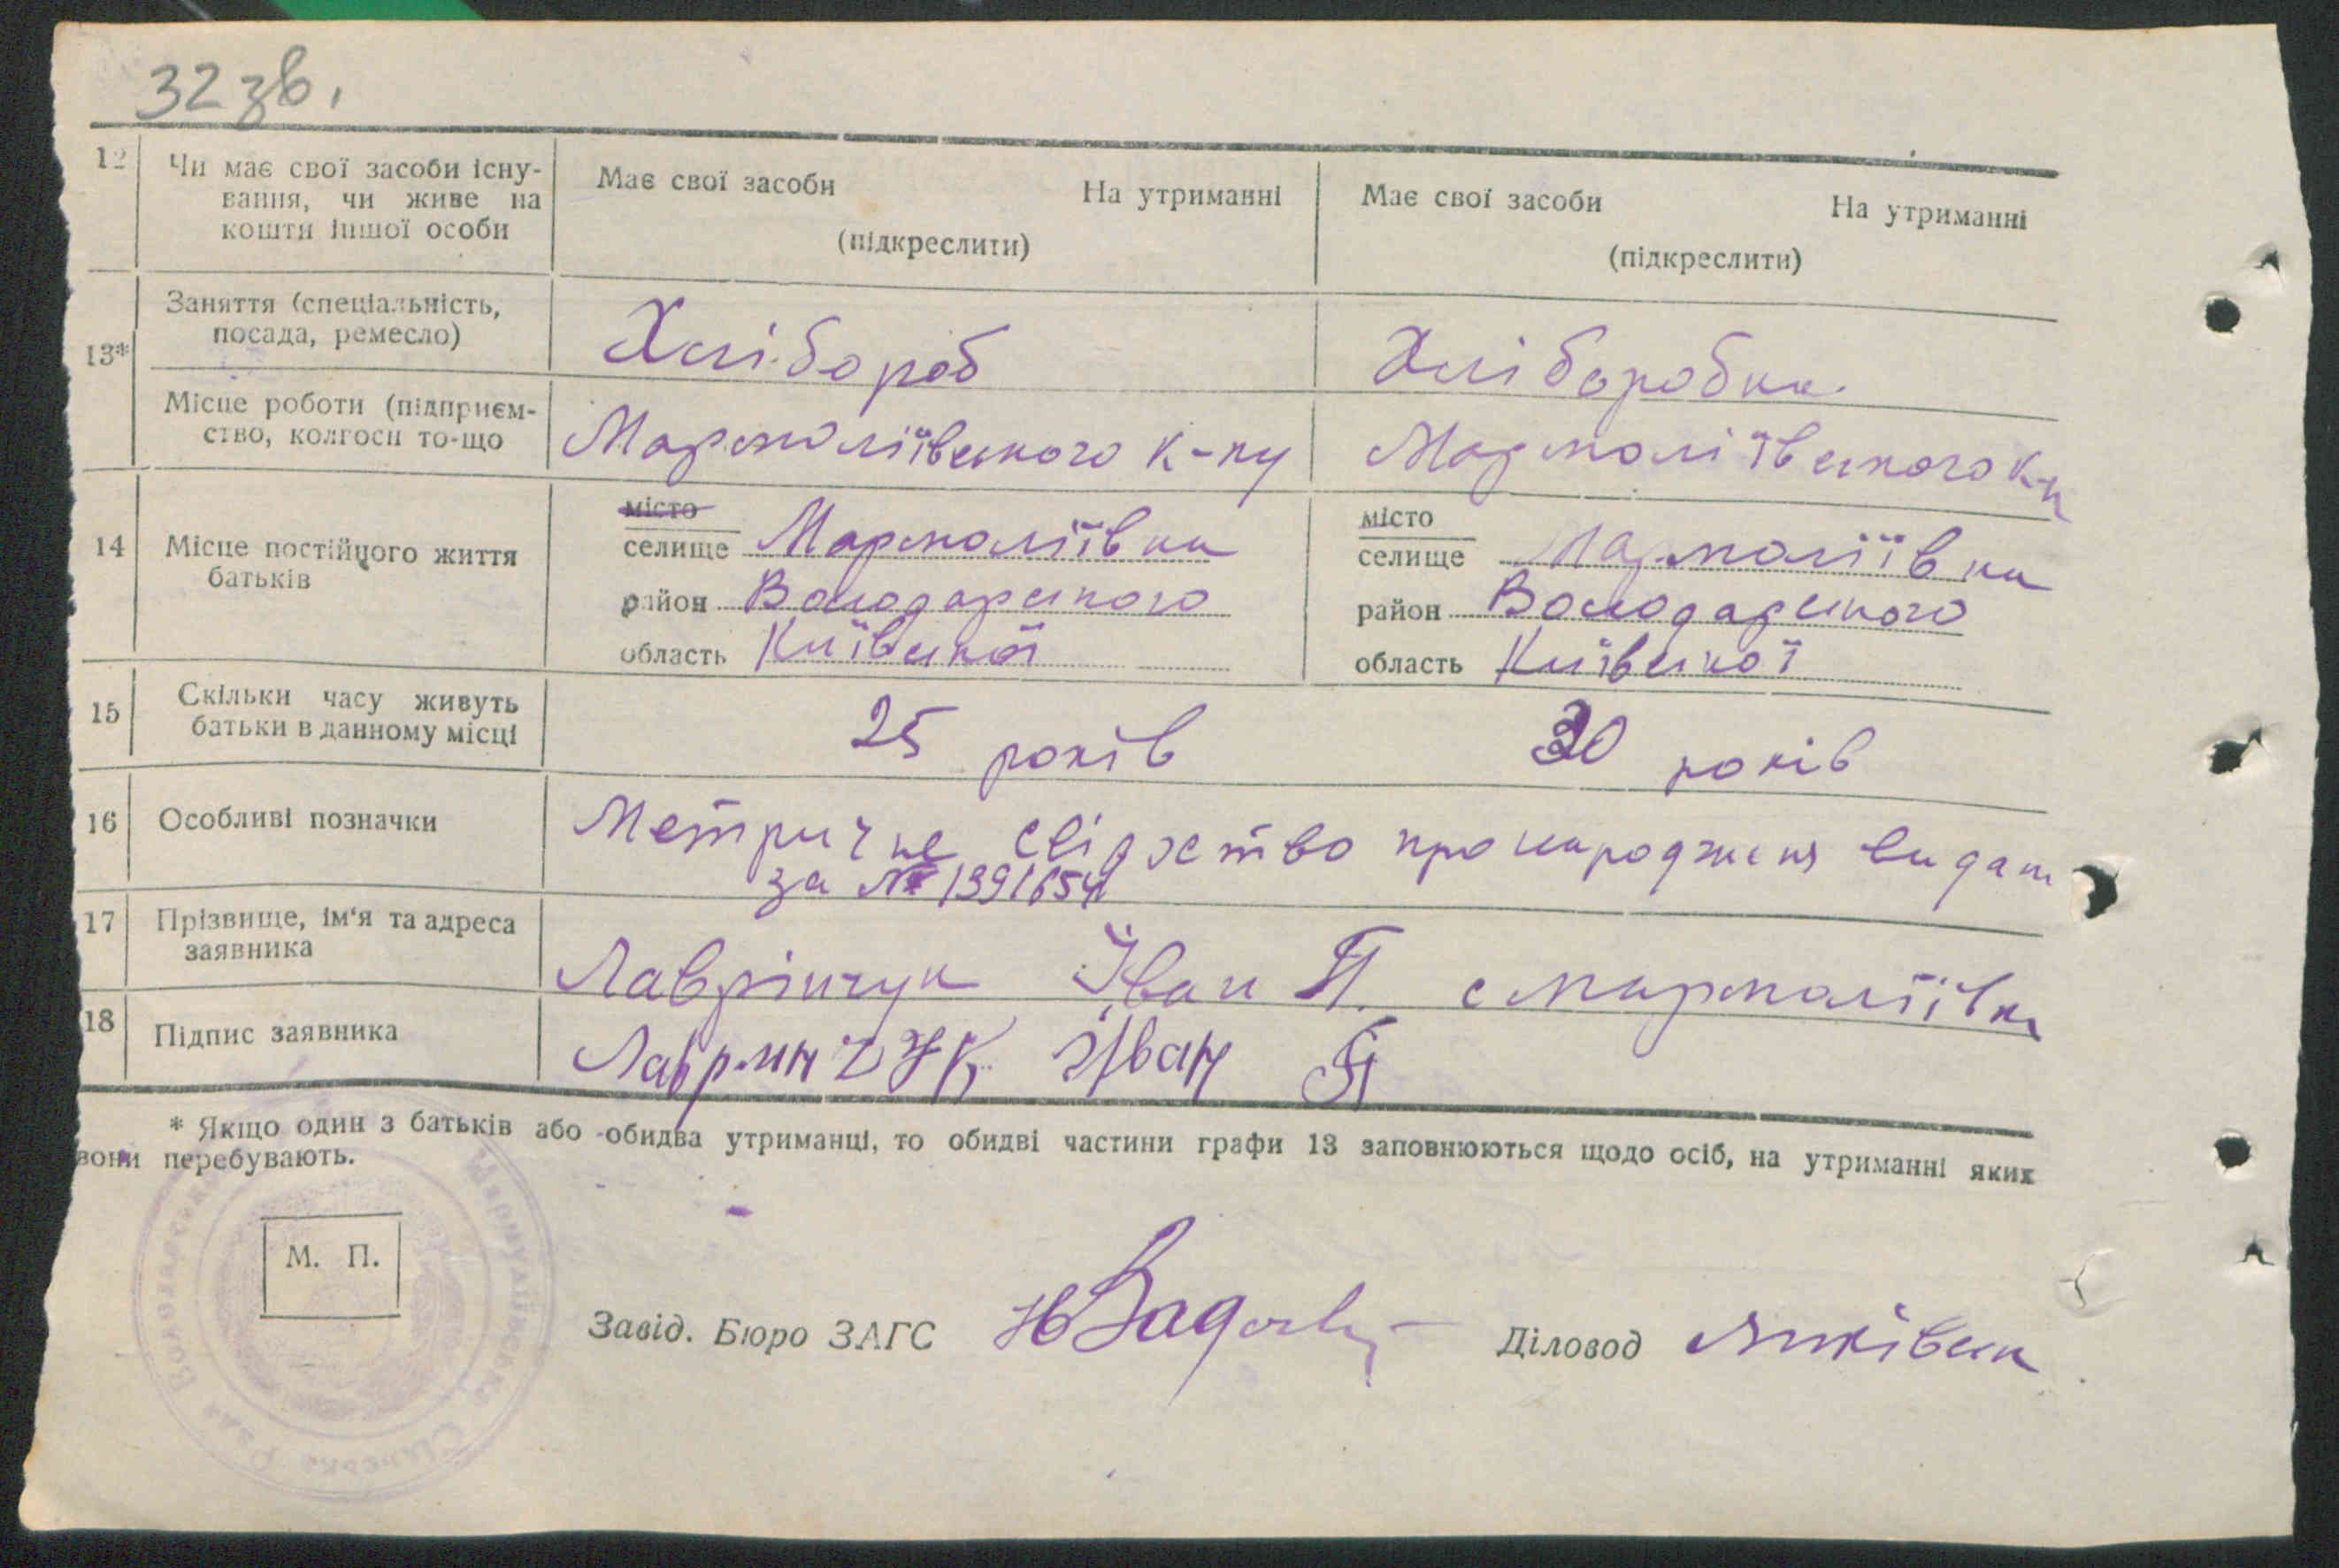 32 зв.
12 Чи має свої засоби існу- Має свої засоби На утриманні Має свої засоби На утриманні
вання, чи живе на
кошти іншої особи (підкреслити) (підкреслити)
13* Заняття (спеціальність, Хлібороб Хліборобка
посада, ремесло)
Місце роботи (підприєм- Мармоліївського к-пу Мармоліївського к-п
ство, колгосп то-що
14 Місце постійного життя місто місто
батьків селище Мармоліївка селище Мармоліївка
район Володарського район Володарського
область Київської область Київської
15 Скільки часу живуть 25 років 30 років
батьки в данному місці
16 Особливі позначки Метричне свідоство про народженя видан
за № 1391654
17 Прізвище, ім'я та адреса Лаврінчук Іван П. с Мармоліївка
заявника
18 Підпис заявника Лавринчук Иван П
* Якщо один з батьків або обидва утриманці, то обидві частини графи 13 заповнюються щодо осіб, на утриманні яких
вони перебувають.
М. П.
Завід. Бюро ЗАГС Діловод
Мармуліївська Сільська Рада